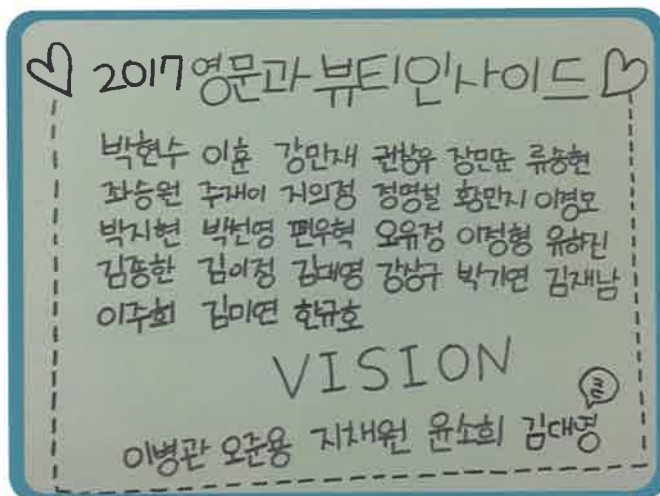 2017 영문과 뷰티인사이드
박현수 이훈 강만재 권창우 장민준 류승현
좌승원 주재이 지의정 정명철 황민지 이경모
박지현 박선영 편우혁 오유정 이정형 유하진
김종한 김이정 김대영 강상규 박기연 김재남
이주희 김미연 한규호
VISION
이병관 오준용 지채원 윤소희 김대영